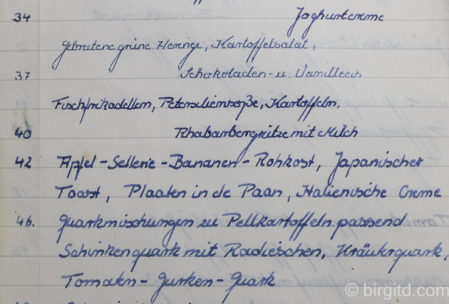 34 Joghurtcreme
Gebratene grüne Heringe, Kartoffelsalat,
37 Schokoladen- u. Vanilleeis
Fischfrikadellen, Petersiliensoße, Kartoffeln,
40 Rhabarbergrütze mit Milch
42 Apfel-Sellerie-Bananen-Rohkost, Japanischer
Toast, Plaaten in de Paan, Italienische Creme
46. Quarkmischungen zu Pellkartoffeln passend
Schinkenquark mit Radieschen, Kräuterquark,
Tomaten-Gurken-Quark
© birgitd.com